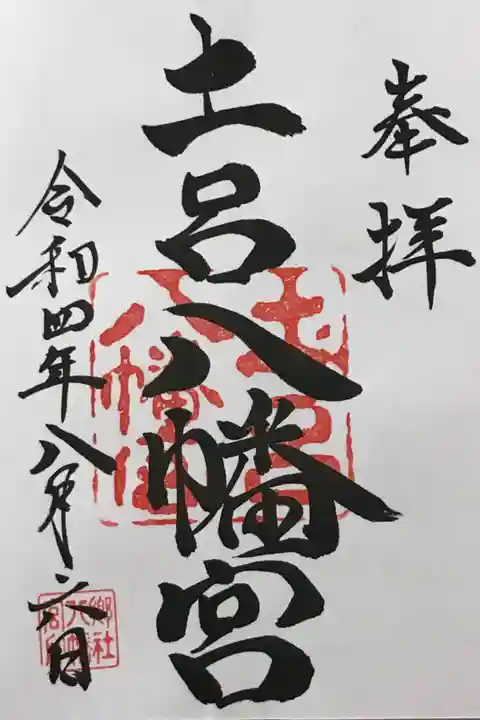 奉拝
土呂八幡宮
令和四年八月六日
土呂
八幡宮
郷社